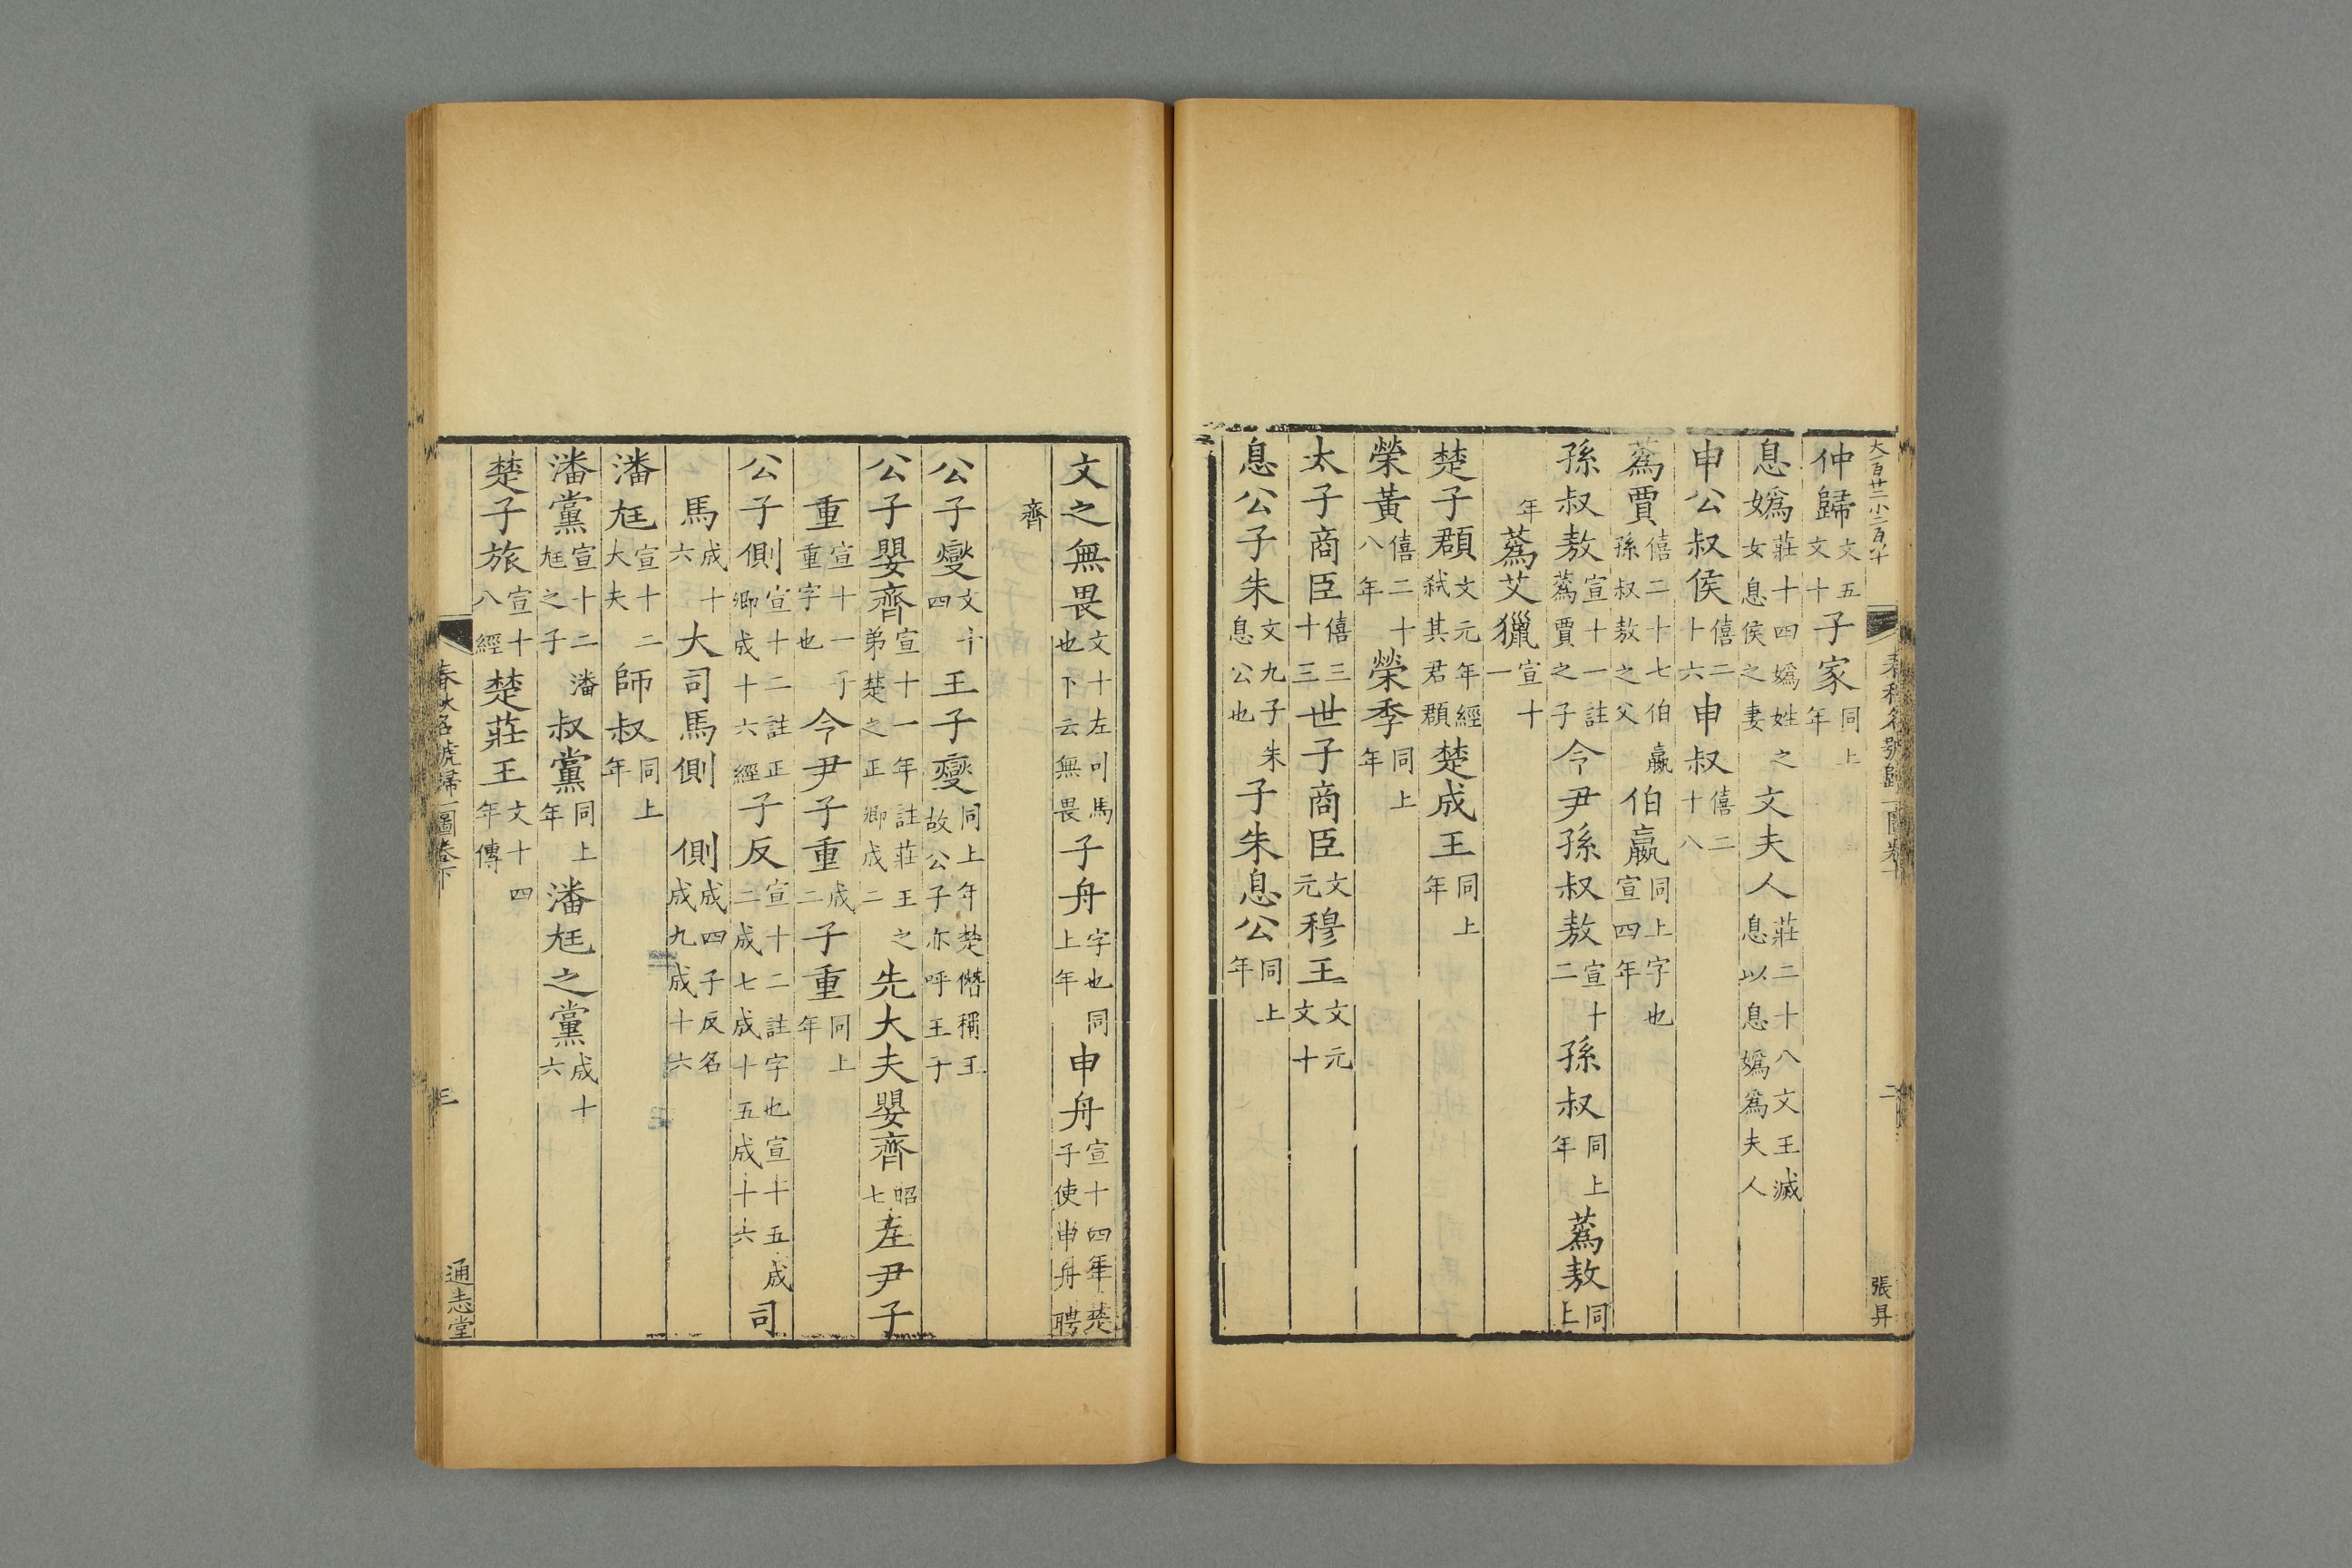 大一百廿二小二百八十
仲歸文五文十子家同上年
息嬀莊十四嬀姓之女息侯之妻文夫人莊二十八文王滅息以息嬀爲夫人
申公叔侯僖二十六申叔僖二十八
蔿賈僖二十七伯嬴孫叔敖之父伯嬴同上字也宣四年
孫叔敖宣十一註蔿賈之子令尹孫叔敖宣十二孫叔同上年蔿敖同上
年蔿艾獵宣十一
楚子頵文元年經弒其君頵楚成王同上年
榮黃僖二十八年榮季同上年
太子商臣僖三十三世子商臣文元穆王文元文十
息公子朱文九子朱息公也子朱息公同上年
張昇
文之無畏文十左司馬也下云無畏子舟字也同上年申舟宣十四年楚子使申舟聘
齊
公子燮文十四王子燮同上年楚僭稱王故公子亦呼王子
公子嬰齊宣十一年註莊王之弟楚之正卿成二先大夫嬰齊昭七左尹子
重宣十一子重字也令尹子重成二子重同上年
公子側宣十二註正卿成十六經子反宣十二註字也宣十五成二成七成十五成十六司
馬成十六大司馬側側成四子反名成九成十六
潘尫宣十二大夫師叔同上年
潘黨宣十二潘尫之子叔黨同上年潘尫之黨成十六
楚子旅宣十八經楚莊王文十四年傳
春秋名號歸一圖卷下
三
通志堂